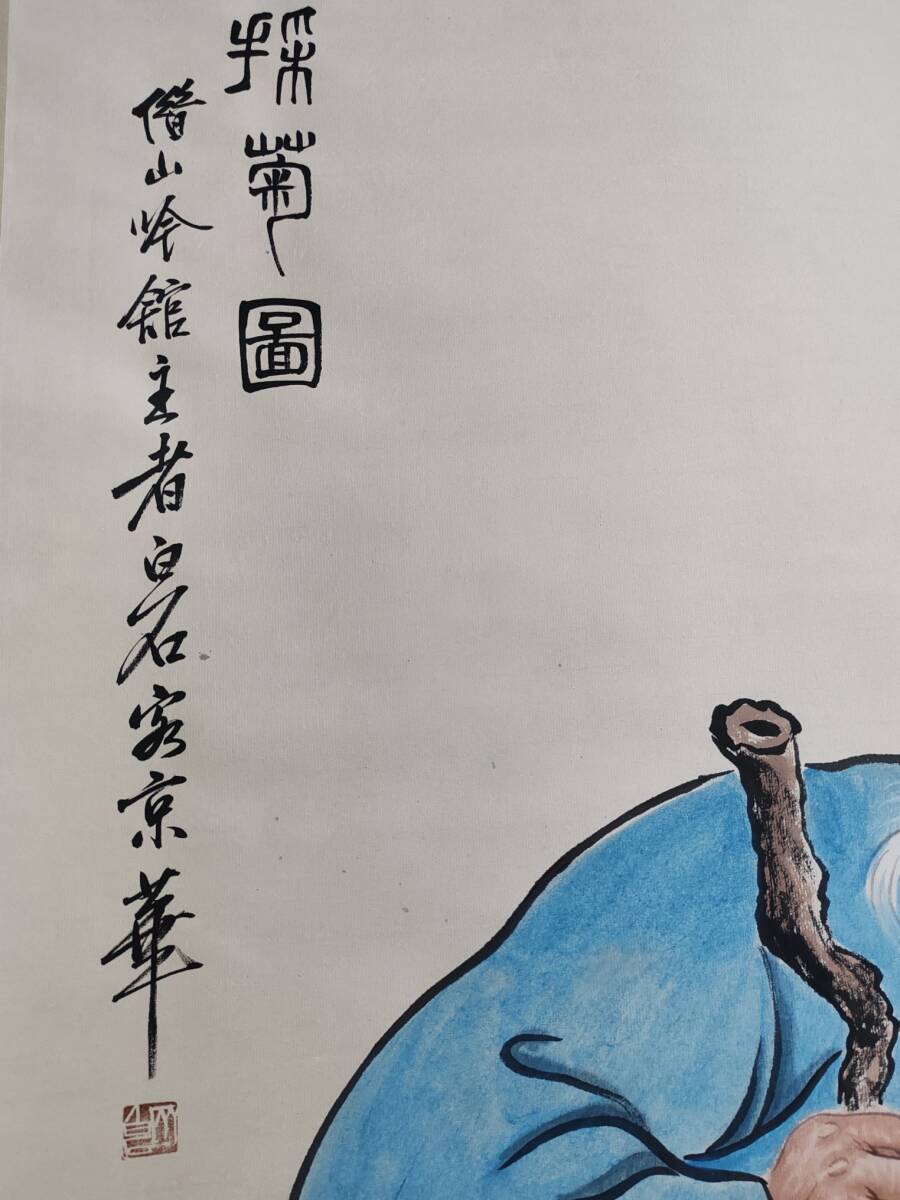 採菊圖
借山吟館主者白石客京華